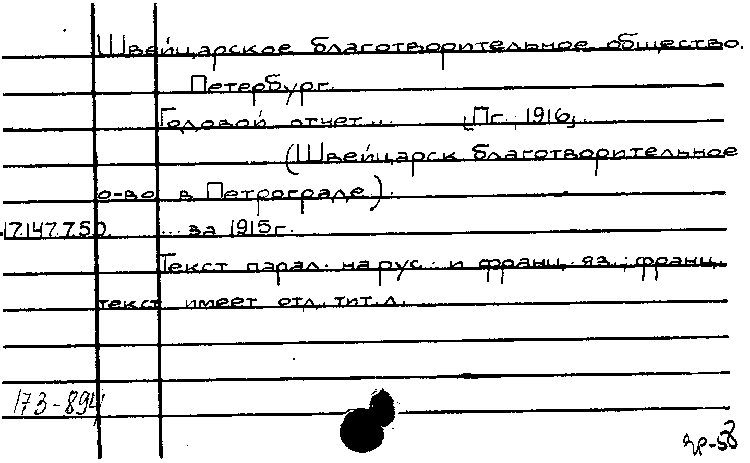 Швейцарское благотворительное общество.
Петербург.
Годовой отчет... [Пг., 1916].
(Швейцарск благотворительное
о-во в Петрограде).
17.147.7.50 ... за 1915г.
Текст парал. на рус. и франц. яз.; франц.
текст имеет отд. тит. л.
173-894